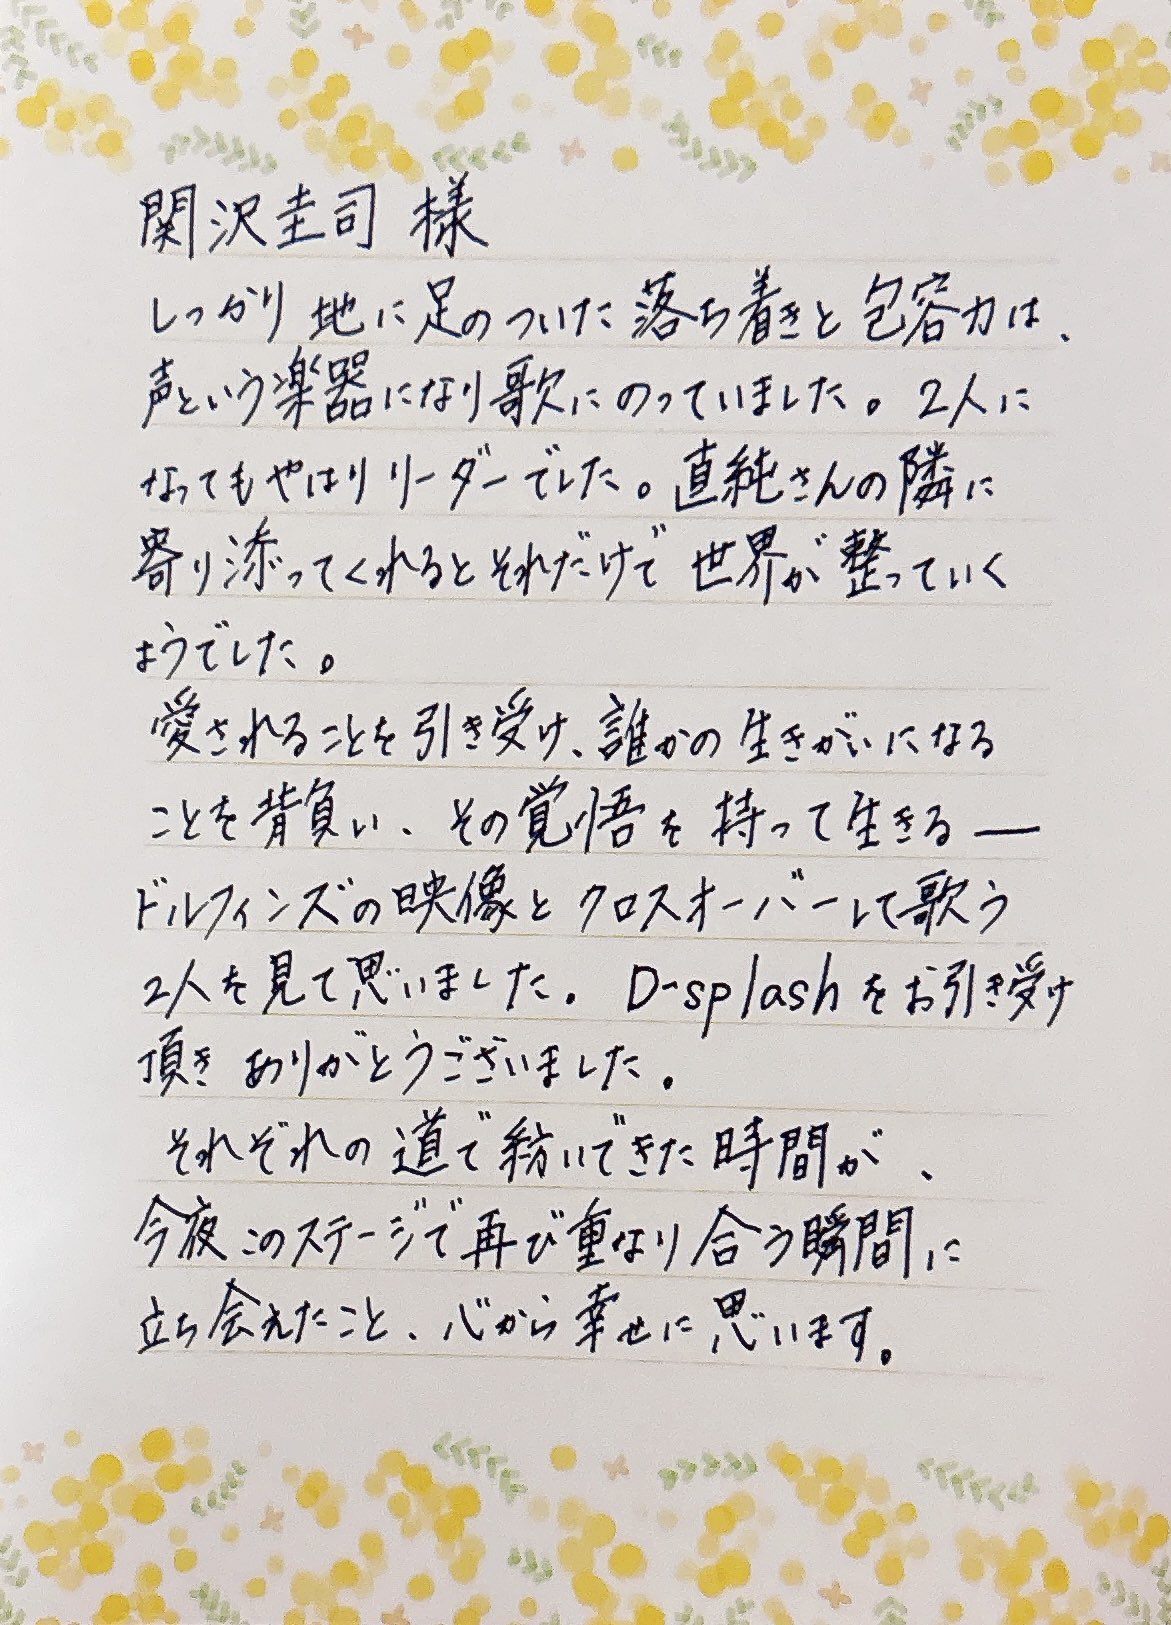 関沢圭司 様
しっかり地に足のついた落ち着きと包容力は、
声という楽器になり歌にのっていました。2人に
なってもやはりリーダーでした。直純さんの隣に
寄り添ってくれるとそれだけで世界が整っていく
ようでした。
愛されることを引き受け、誰かの生きがいになる
ことを背負い、その覚悟を持って生きる―
ドルフィンズの映像とクロスオーバーして歌う
2人を見て思いました。D-splashをお引き受け
頂きありがとうございました。
それぞれの道で紡いできた時間が、
今夜このステージで再び重なり合う瞬間に
立ち会えたこと、心から幸せに思います。